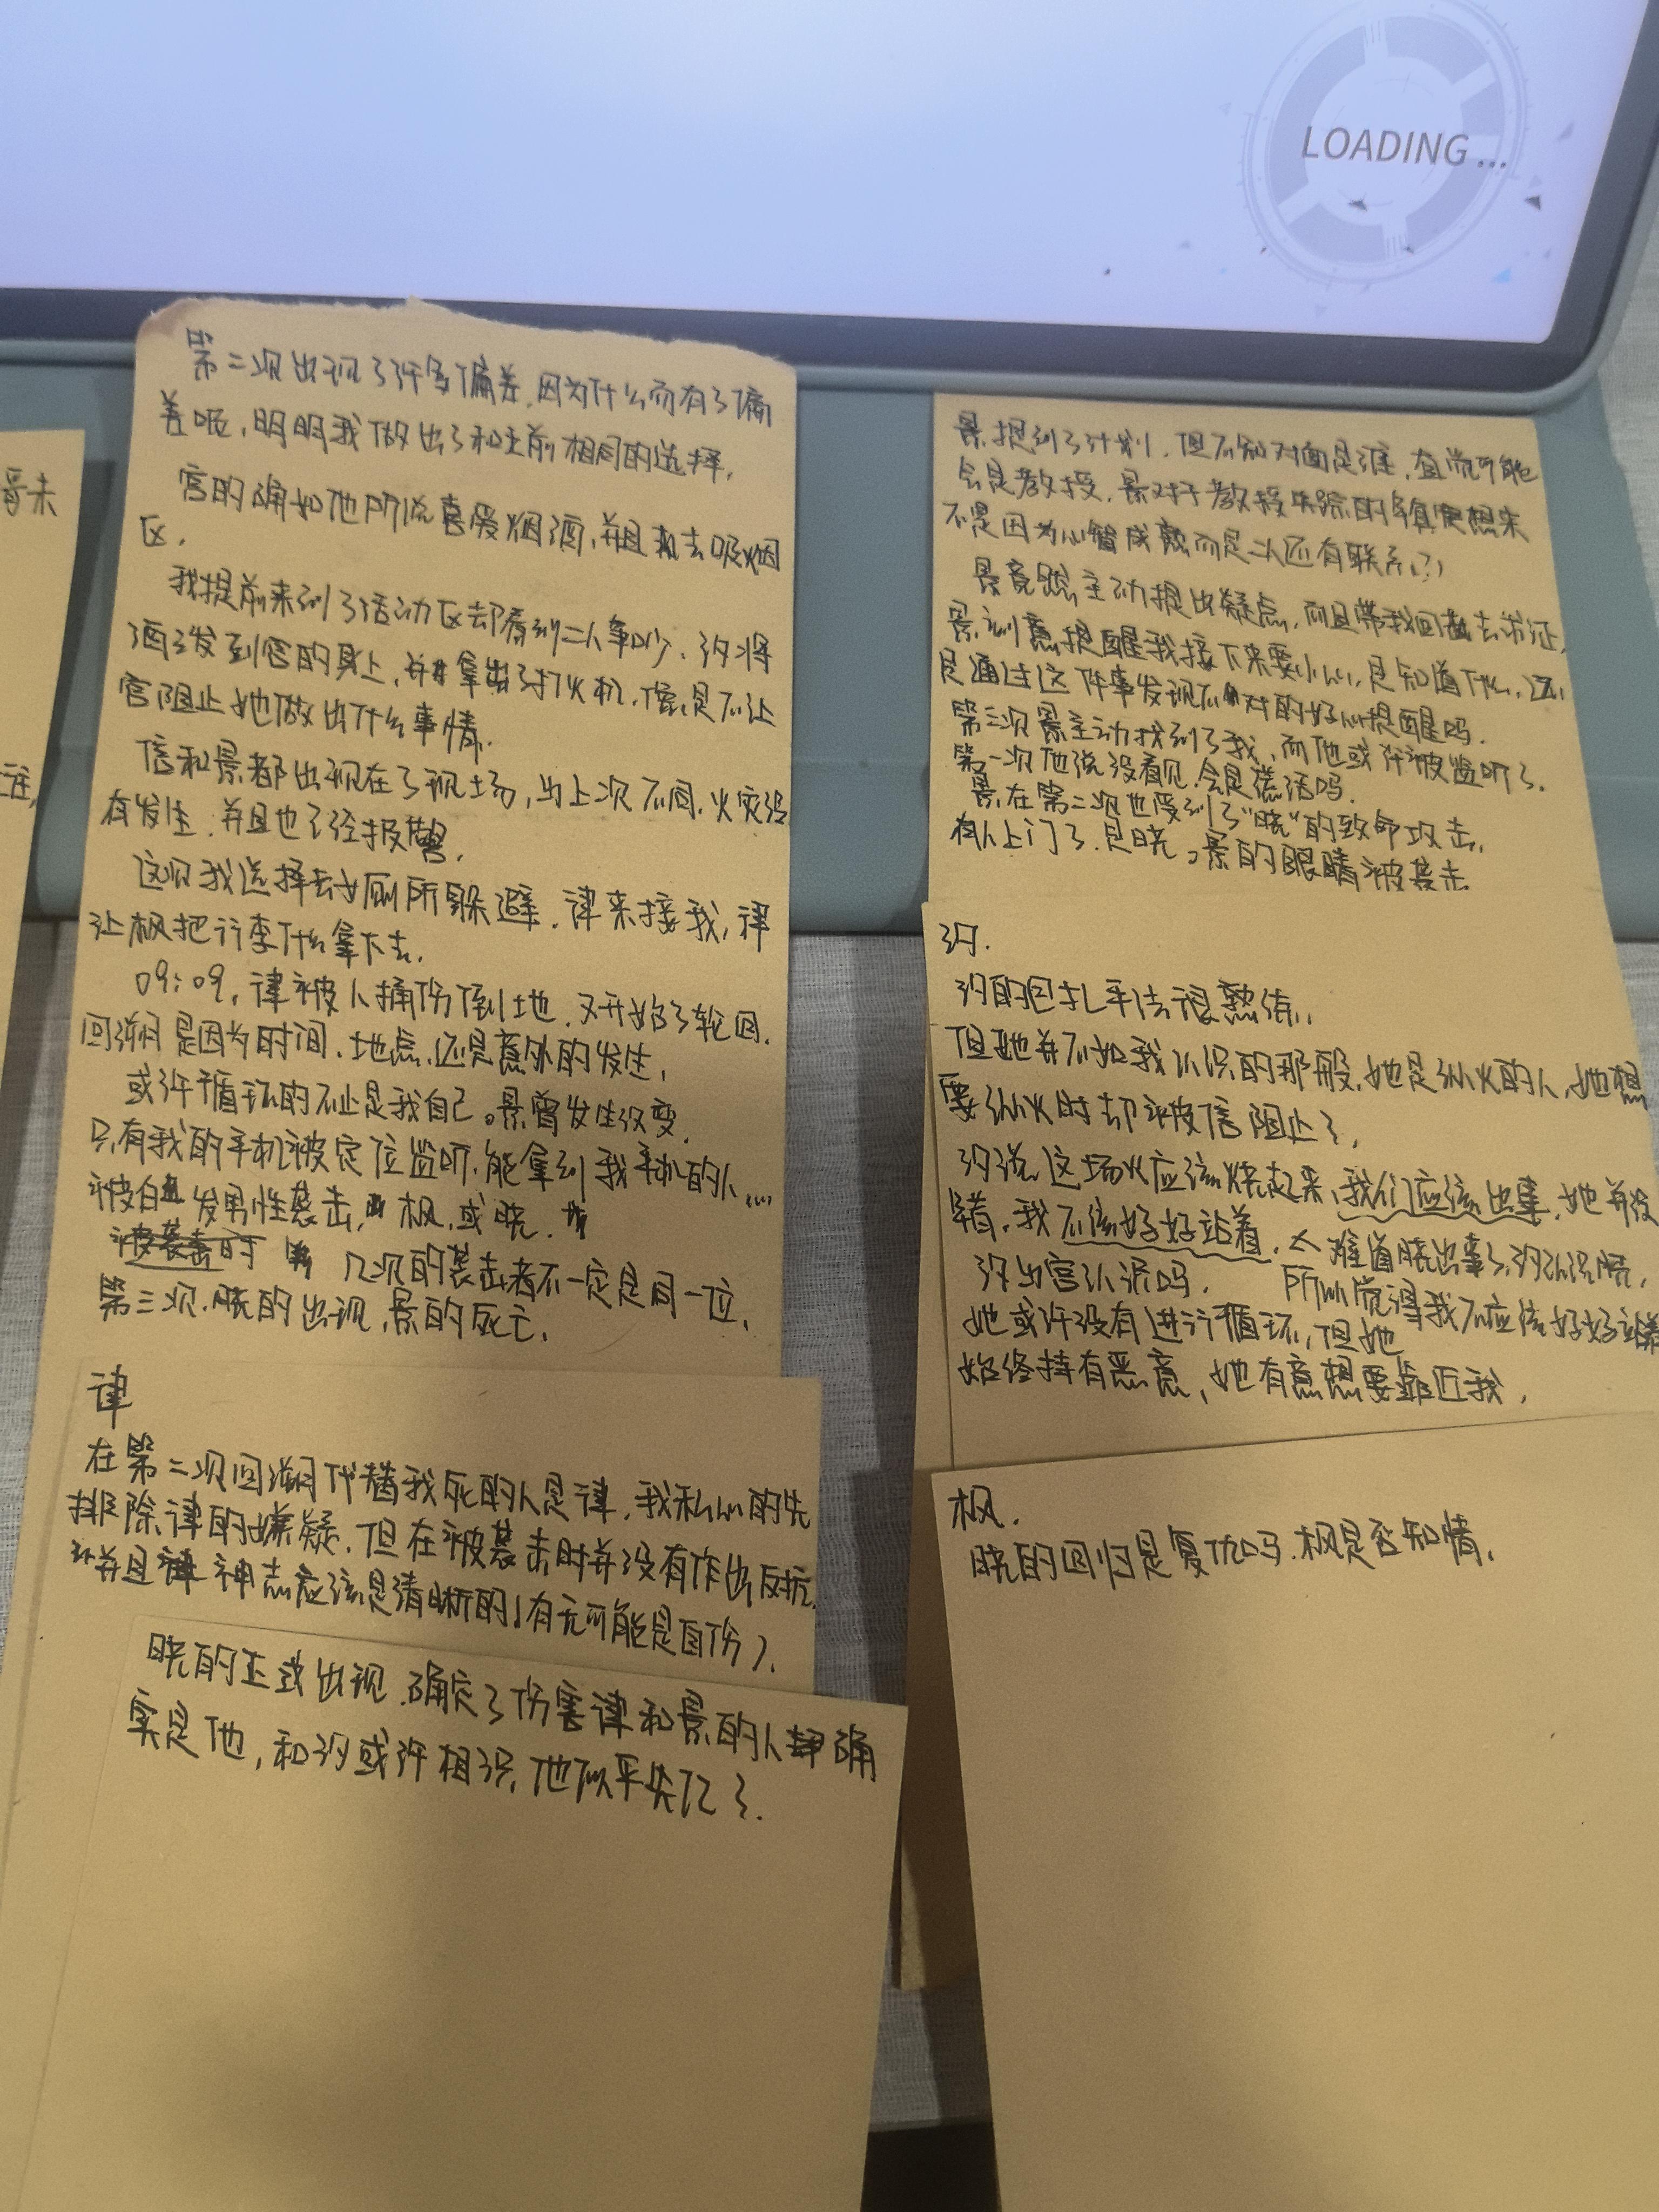 LOADING...
哥未
谁,
第二次出现了许多偏差,因为什么而有了偏
差呢,明明我做出了和之前相同的选择,
宫的确如他所说喜爱烟酒,并且去吸烟
区,
我提前来到了活动区却看到二人争吵,汐将
酒泼到宫的身上,并拿出了打火机,像是不让
宫阻止她做出什么事情.
信和景都出现在了现场,与上次不同,火灾没
有发生.并且也已经报警,
这次我选择去女厕所躲避,律来接我,律
让枫把行李什么拿下去,
09:09,律被人捅伤倒地,又开始了轮回,
回溯是因为时间、地点,还是意外的发生,
或许循环的不止是我自己。景曾发生改变,
只有我的手机被定位监听,能拿到我手机的人……
被白发男性袭击,枫,或晓,
被袭击时 几次的袭击者不一定是同一位,
第三次,晓的出现,景的死亡,
律
在第二次回溯代替我死的人是律,我私心的先
排除律的嫌疑,但在被袭击时并没有作出反抗,
并且律神志应该是清晰的(有无可能是自伤),
晓的正式出现,确定了伤害律和景的人确
实是他,和汐或许相识,他似乎失忆了.
景提到了计划,但不知对面是谁,直觉可能
会是教授,景对于教授失踪的镇定想来
不是因为心智成熟而是二人还有联系(?)
景竟然主动提出疑点,而且带我回去求证,
景刻意提醒我接下来要小心,是知道什么,还
是通过这件事发现不对的好心提醒吗.
第三次景主动找到了我,而他或许被监听了.
第一次他说没看见,会是谎话吗.
景在第二次也受到了"晓"的致命攻击,
有人上门了,是晓。景的眼睛被袭击
汐.
汐的包扎手法很熟练,
但她并不如我认识的那般,她是纵火的人,她想
要纵火时却被信阻止了,
汐说这场火应该烧起来,我们应该出事,她并没
错,我不该好好站着, 难道晓出事了,汐认识晓,
汐与宫认识吗. 所以觉得我不应该好好站着
她或许没有进行循环,但她
始终持有恶意,她有意想要靠近我,
枫.
晓的回归是复仇吗.枫是否知情,